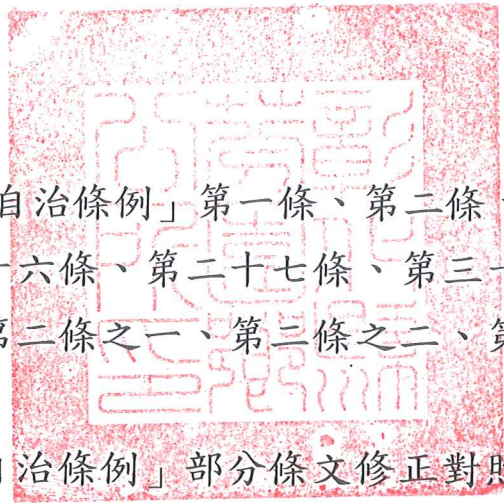 自治條例」第一條、第二條
十六條、第二十七條、第三十
第二條之一、第二條之二、第
自治條例」部分條文修正對照